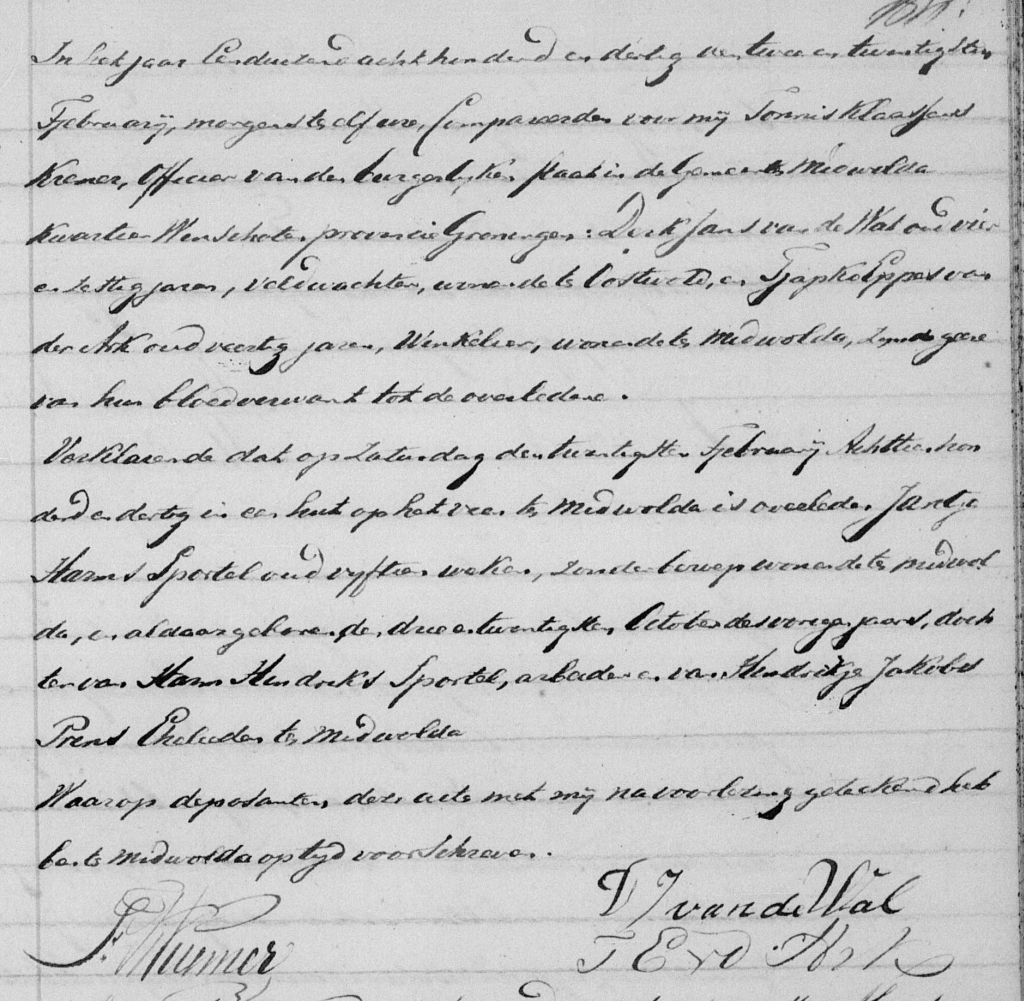 In het jaar Eenduizend achthonderd en dertig den twee en twintigsten
Febuarij, morgens te elf ure, Compareerden voor mij Tonnis Klaassens
Kremer, Officier van den burgerlyken staat in de Gemeente Midwolda
Kwartier Winschoten provincie Groningen: Derk Jans van de Wal oud vier
en zestig jaren, veldwachter, wonende te Oostwold, en Tjapko Eppes van
der Ark oud veertig jaren, Winkelier, wonende te Midwolda, zynde geene
van hun bloedverwant tot de overledene.
Verklarende dat op Zaturdag den twintigsten Februarij Achttienhon
derd en dertig in een hut op het veen te Midwolda is overleden Jantje
Harms Sportel oud vyftien weken, zonder beroep wonende te Midwol
da, en aldaar geboren den drie en twintigsten October des vorigen jaars, doch
ter van Harm Hendriks Sportel, arbeider en van Hendrikje Jakobs
Prens Ehelieden te Midwolda
Waarop deposanten deze acte met mij na voorlezing getekend heb
ben te Midwolda op tyd voorschreven.
D J van de Wal
T. Kremer
T E v d Ark